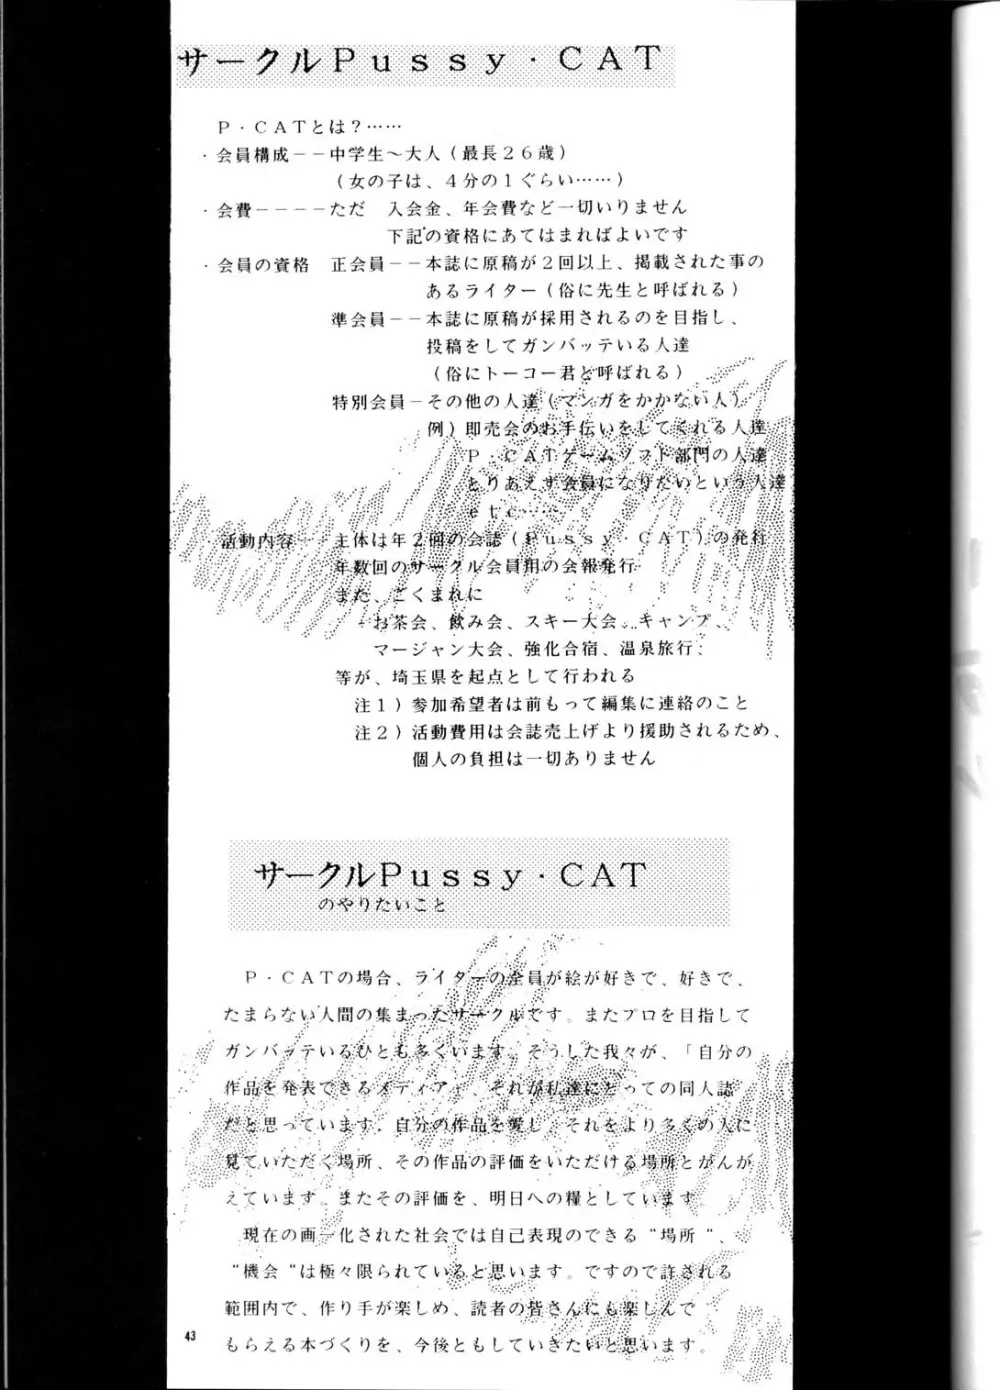 サークルＰｕｓｓｙ・ＣＡＴ
Ｐ・ＣＡＴとは？……
・会員構成－－中学生～大人（最長２６歳）
（女の子は、４分の１ぐらい……）
・会費－－－－ただ　入会金、年会費など一切いりません
下記の資格にあてはまればよいです
・会員の資格　正会員－－本誌に原稿が２回以上、掲載された事の
あるライター（俗に先生と呼ばれる）
準会員－－本誌に原稿が採用されるのを目指し、
投稿をしてガンバッテいる人達
（俗にトーコー君と呼ばれる）
特別会員－その他の人達（マンガをかかない人）
例）即売会のお手伝いをしてくれる人達
Ｐ・ＣＡＴゲームソフト部門の人達
とりあえず会員になりたいという人達
ｅｔｃ……
活動内容－－主体は年２回の会誌（Ｐｕｓｓｙ・ＣＡＴ）の発行
年数回のサークル会員用の会報発行
また、ごくまれに
お茶会、飲み会、スキー大会、キャンプ、
マージャン大会、強化合宿、温泉旅行、
等が、埼玉県を起点として行われる
注１）参加希望者は前もって編集に連絡のこと
注２）活動費用は会誌売上げより援助されるため、
個人の負担は一切ありません
サークルＰｕｓｓｙ・ＣＡＴ
のやりたいこと
Ｐ・ＣＡＴの場合、ライターの全員が絵が好きで、好きで、
たまらない人間の集まったサークルです。またプロを目指して
ガンバッテいるひとも多くいます。そうした我々が、「自分の
作品を発表できるメディア」、それが私達にとっての同人誌
だと思っています。自分の作品を愛し、それをより多くの人に
見ていただく場所、その作品の評価をいただける場所とがんが
えています。またその評価を、明日への糧としています。
現在の画一化された社会では自己表現のできる“場所“、
“機会“は極々限られていると思います。ですので許される
範囲内で、作り手が楽しめ、読者の皆さんにも楽しんで
もらえる本づくりを、今後ともしていきたいと思います。
43